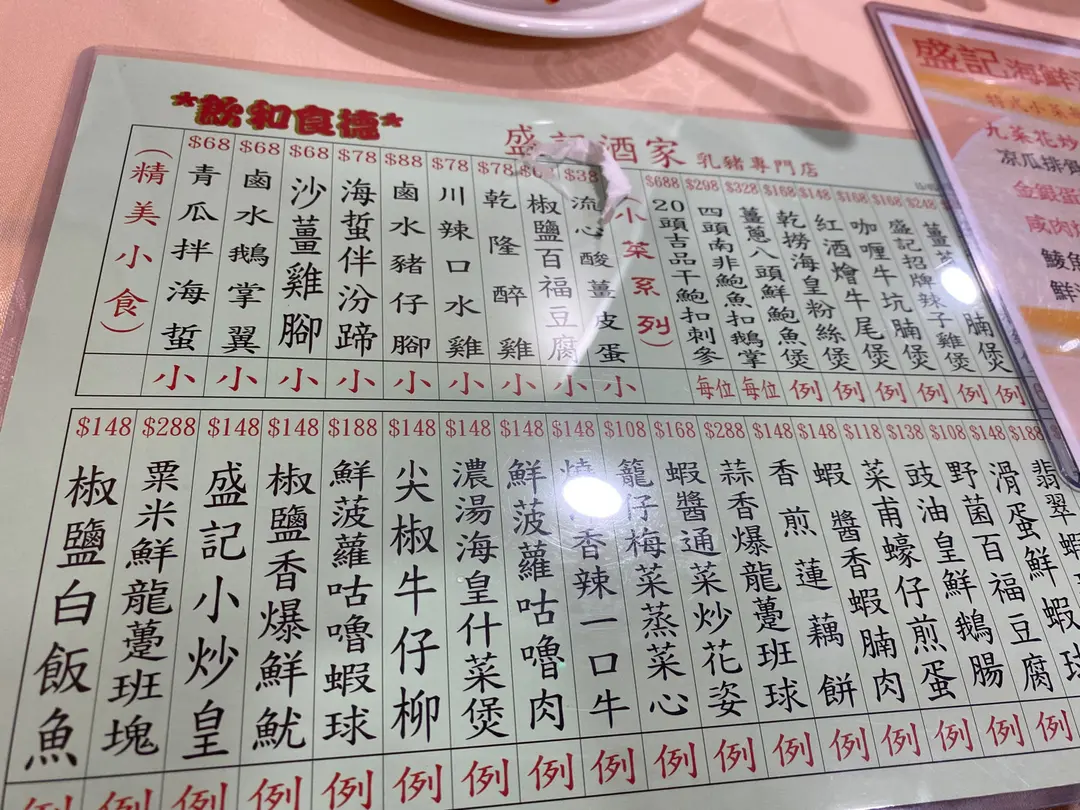 *新和食德*
盛記酒家 乳豬專門店
(精美小食)
$68 青瓜拌海蜇 小
$68 鹵水鵝掌翼 小
$68 沙薑雞腳 小
$78 海蜇伴汾蹄 小
$88 鹵水豬仔腳 小
$78 川辣口水雞 小
$78 乾隆醉雞 小
椒鹽百福豆腐 小
$38 流心酸薑皮蛋 小
(小菜系列)
$688 20頭吉品干鮑扣刺參 每位
$298 四頭南非鮑魚扣鵝掌 每位
$328 薑蔥八頭鮮鮑魚煲 例
$168 乾撈海皇粉絲煲 例
$148 紅酒燴牛尾煲 例
$168 咖喱牛坑腩煲 例
$168 盛記招牌辣子雞煲 例
$248 薑 腩煲 例
$148 椒鹽白飯魚 例
$288 粟米鮮龍躉班塊 例
$148 盛記小炒皇 例
$148 椒鹽香爆鮮魷 例
$188 鮮菠蘿咕嚕蝦球 例
$148 尖椒牛仔柳 例
$148 濃湯海皇什菜煲 例
$148 鮮菠蘿咕嚕肉 例
$148 燒 香辣一口牛 例
$108 籠仔梅菜蒸菜心 例
$168 蝦醬通菜炒花姿 例
$288 蒜香爆龍躉班球 例
$148 香煎蓮藕餅 例
$148 蝦醬香蝦腩肉 例
$118 菜甫蠔仔煎蛋 例
$138 豉油皇鮮鵝腸 例
$108 野菌百福豆腐 例
$148 滑蛋鮮蝦 例
$188 翡翠蝦球
盛記海鮮
特式小菜
九菜花炒
涼瓜排
金銀蛋
咸肉
鯪魚
鮮